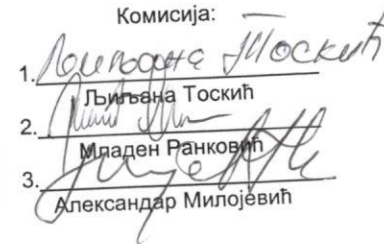 Комисија:
1. Љиљана Тоскић
Љиљана Тоскић
2.
Младен Ранковић
3.
Александар Милојевић